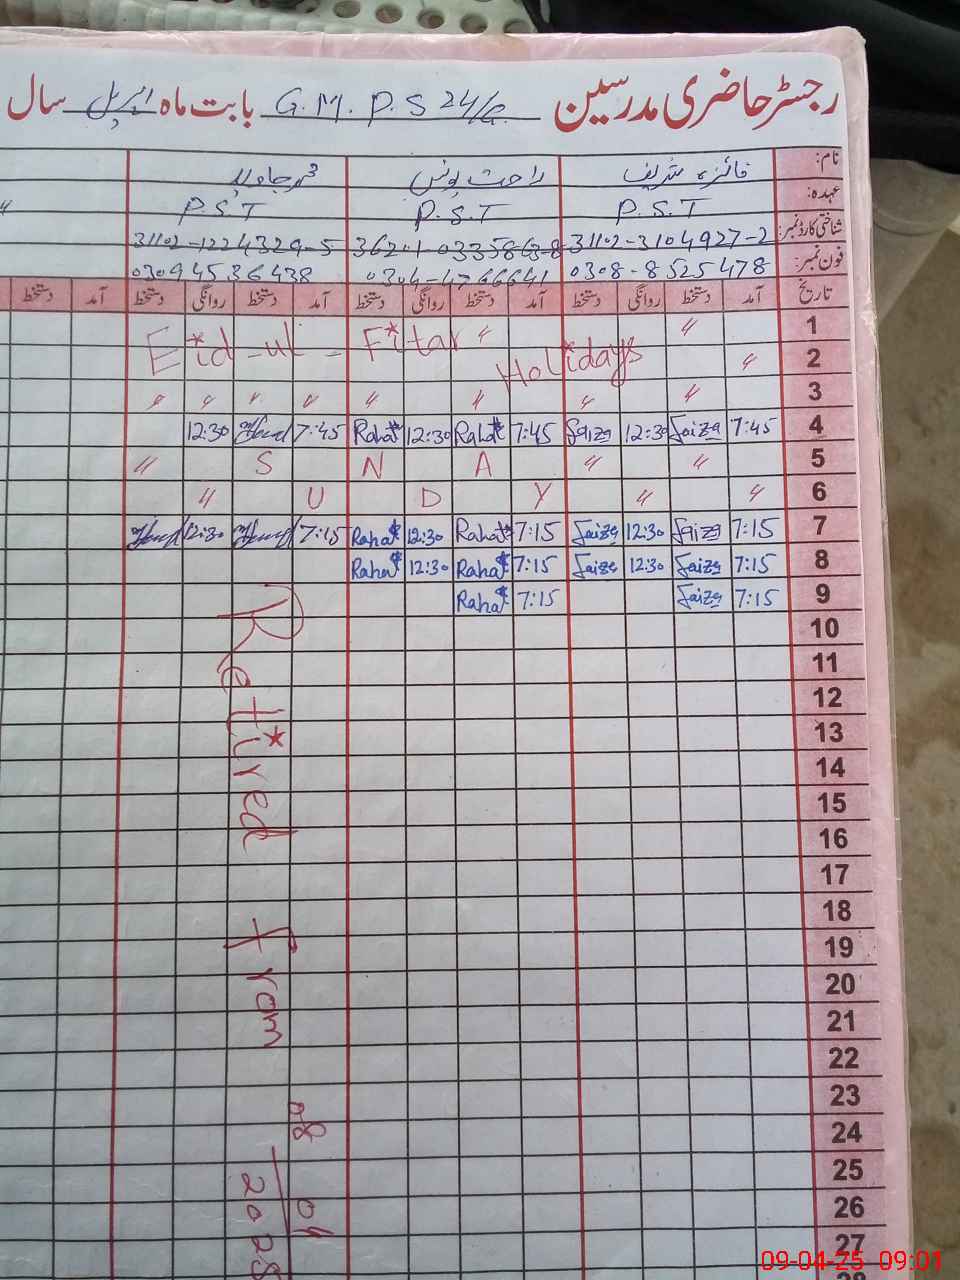 رجسٹر حاضری مدرسین G.M.P.S 24/G بابت ماہ اپریل سال
نام: فائزہ شریف راحت یونس محمد جاوید
عہدہ: P.S.T P.S.T P.S.T
شناختی کارڈ نمبر: 31102-3104927-2 31102-1224329-5
فون نمبر: 0308-8525478 0304-4766641 03094536438
تاریخ آمد دستخط روانگی دستخط آمد دستخط روانگی دستخط آمد دستخط روانگی دستخط آمد دستخط
1 〃 〃 Eid-ul-Fitar
2 〃 Holidays
3 〃 〃 〃 〃 〃 〃 〃 〃
4 7:45 Faiza 12:30 Faiza 7:45 Rahat 12:30 Rahat 7:45 12:30
5 〃 〃 A N S 〃
6 〃 〃 Y D U 〃
7 7:15 Faiza 12:30 Faiza 7:15 Rahat 12:30 Rahat 7:15 12:30
8 7:15 Faiza 12:30 Faiza 7:15 Rahat 12:30 Rahat
9 7:15 Faiza 7:15 Rahat
10
11
12
13
14
15
16
17
18
19
20
21
22
23
24
25
26
27
28
Retired from 08/04/2025
09-04-25 09:01